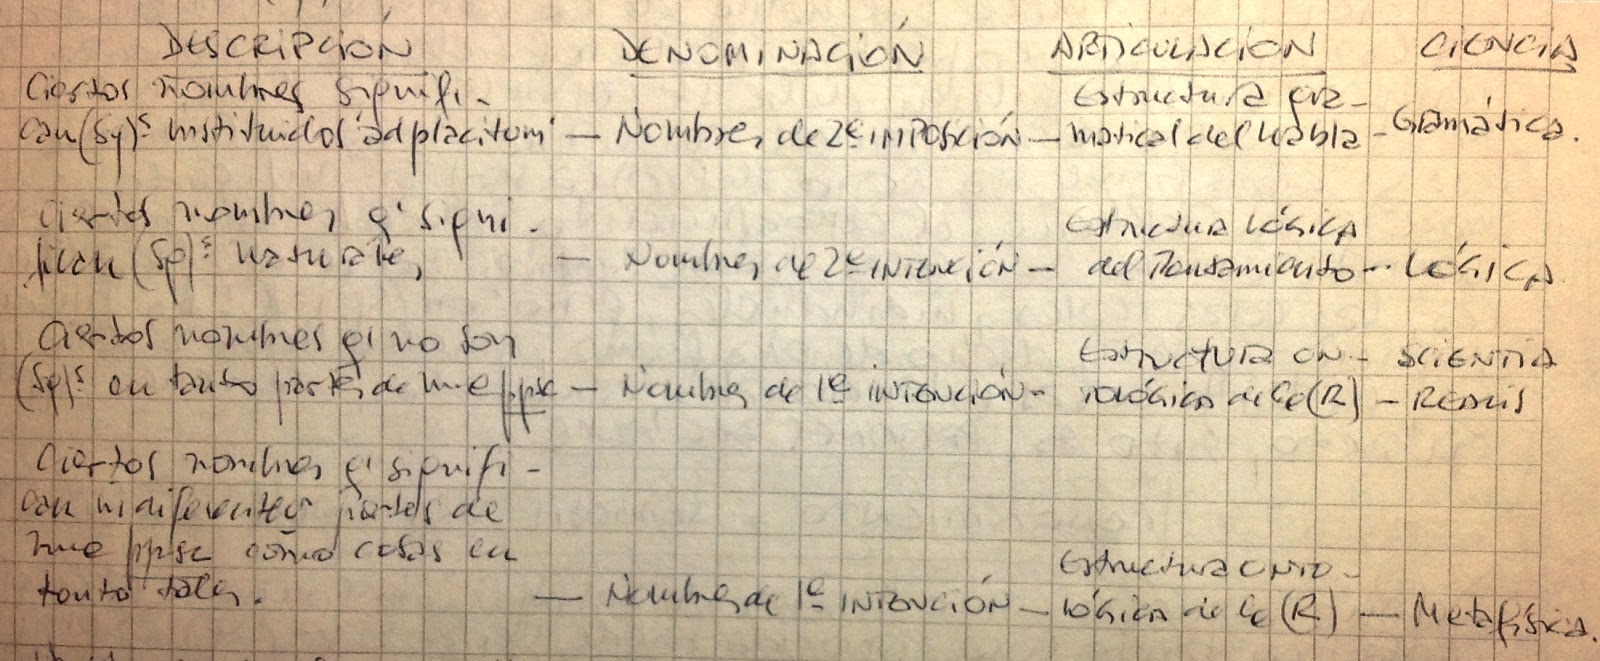 DESCRIPCIÓN DENOMINACIÓN ARTICULACION CIENCIA
Ciertos nombres signifi-
can (Sg)s instituidos 'ad placitum' — Nombres de 2ª IMPOSICIÓN — Estructura gra-
matical del habla - Gramática.
Ciertos nombres q' signi-
fican (Sg)s naturales — Nombres de 2ª INTENCIÓN — Estructura LÓGICA
del Pensamiento - LÓGICA
Ciertos nombres q' no son
(Sg)s en tanto partes de una ppsc — Nombres de 1ª INTENCIÓN - ESTRUCTURA ON-
TOLÓGICA de la (R) — SCIENTIA
REALIS
Ciertos nombres q' signifi-
can indiferentes partes de
una ppsc como cosas en
tanto tales. — Nombres de 1ª INTENCIÓN — Estructura ONTO-
LÓGICA de la (R) — Metafísica.